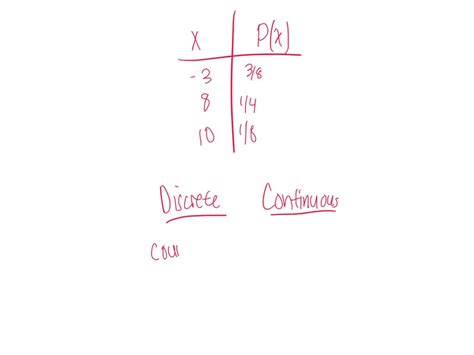 x P(x)
-3 3/8
8 1/4
10 1/8
Discrete Continuous
cou